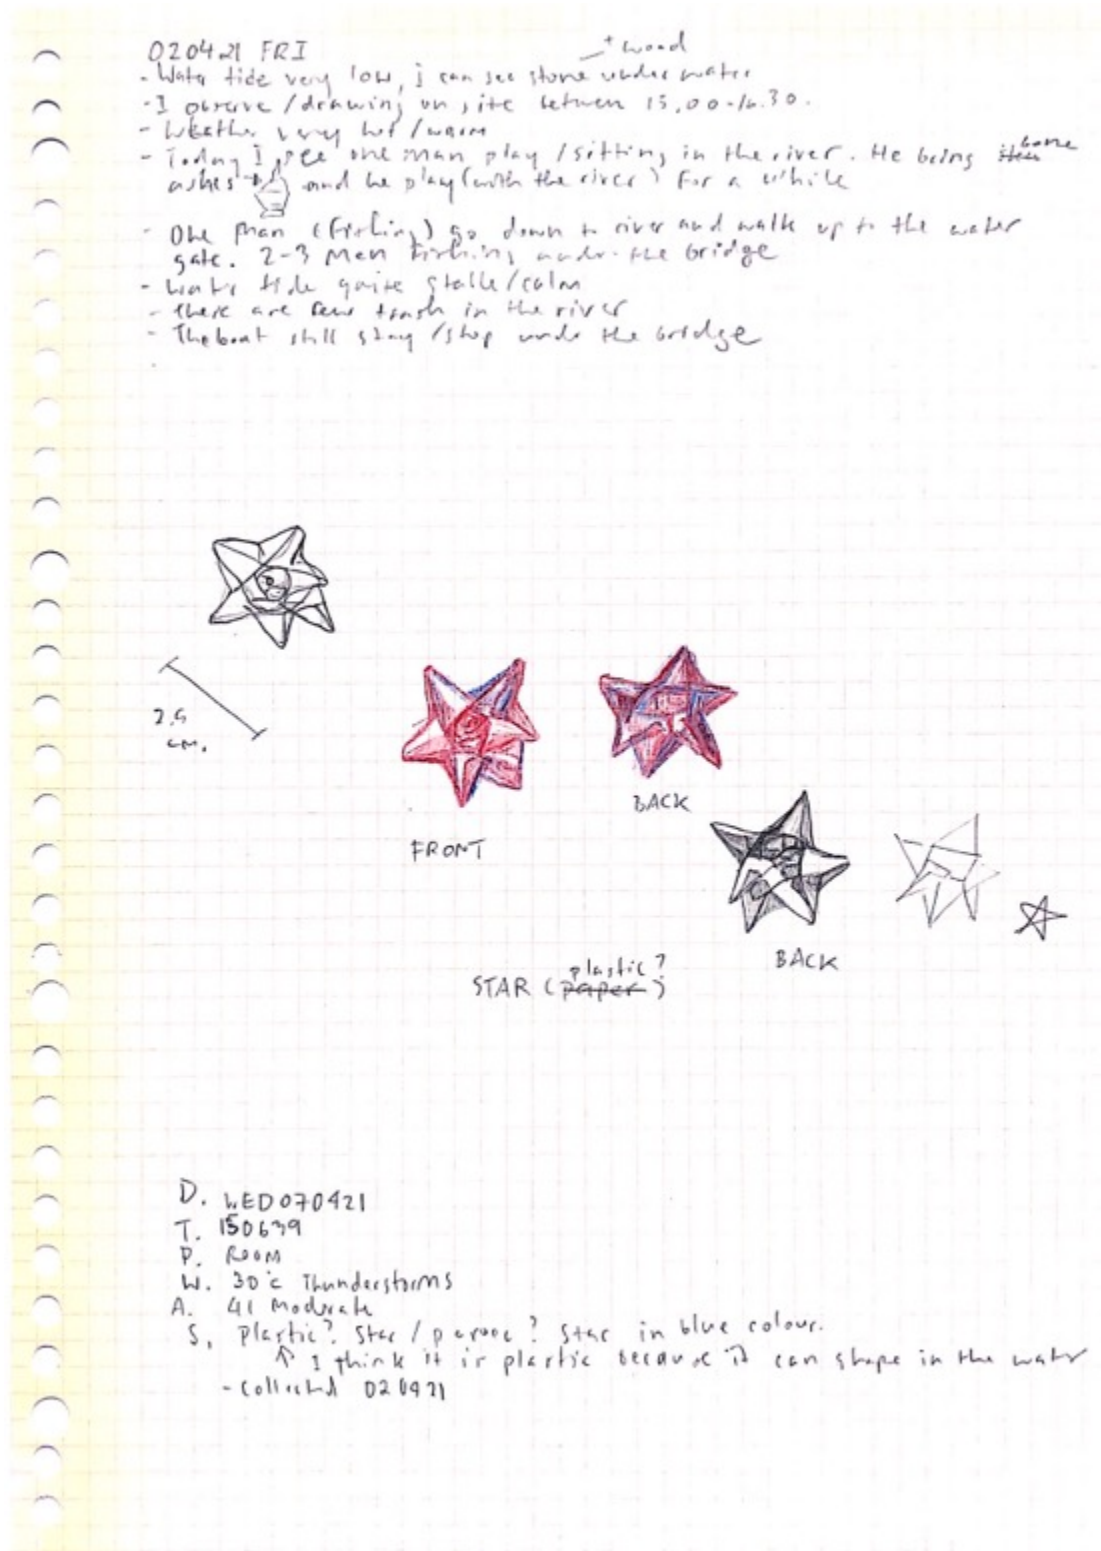 020421 FRI
+ wood
- Water tide very low, i can see stone under water
- I observe /drawing on site between 15.00-16.30.
- Weather very hot /warm
- Today I see one man play /sitting in the river. He bring bone
ashes and he play (with the river) for a while
- One man (fishing) go down to river and walk up to the water
gate. 2-3 men fishing under the bridge
- Water tide quite stable/calm
- There are few trash in the river
- The boat still stay /stop under the bridge
2.5
cm.
FRONT
BACK
BACK
plastic?
STAR (paper)
D. WED070421
T. 150639
P. ROOM
W. 30°c Thunderstorms
A. 41 Moderate
S. plastic? Star / ? Star in blue colour.
↑ I think it is plastic because it can shape in the water
- Collected 020421